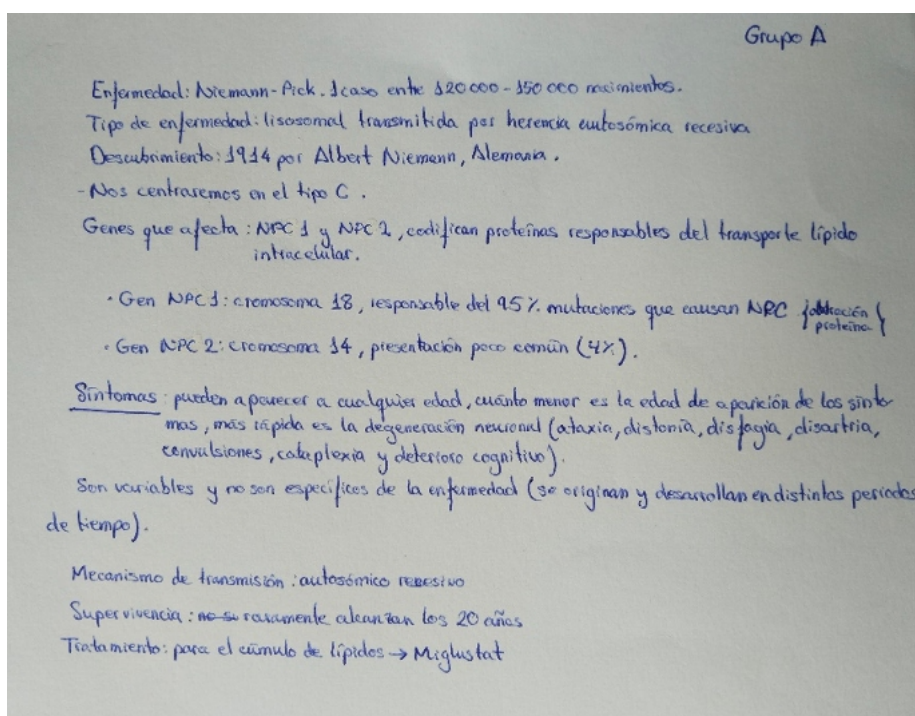 Grupo A
Enfermedad: Niemann-Pick. 1 caso entre 120 000 - 150 000 nacimientos.
Tipo de enfermedad: lisosomal transmitida por herencia autosómica recesiva
Descubrimiento: 1914 por Albert Niemann, Alemania.
- Nos centraremos en el tipo C.
Genes que afecta: NPC 1 y NPC 2, codifican proteínas responsables del transporte lípido
intracelular.
· Gen NPC 1: cromosoma 18, responsable del 95% mutaciones que causan NPC
proteína
· Gen NPC 2: cromosoma 14, presentación poco común (4%).
Síntomas: pueden aparecer a cualquier edad, cuánto menor es la edad de aparición de los sínto
mas, más rápida es la degeneración neuronal (ataxia, distonía, disfagia, disartria,
convulsiones, cataplexia y deterioro cognitivo).
Son variables y no son específicos de la enfermedad (se originan y desarrollan en distintos periodos
de tiempo).
Mecanismo de transmisión: autosómico recesivo
Supervivencia: no su raramente alcanzan los 20 años
Tratamiento: para el cúmulo de lípidos → Miglustat